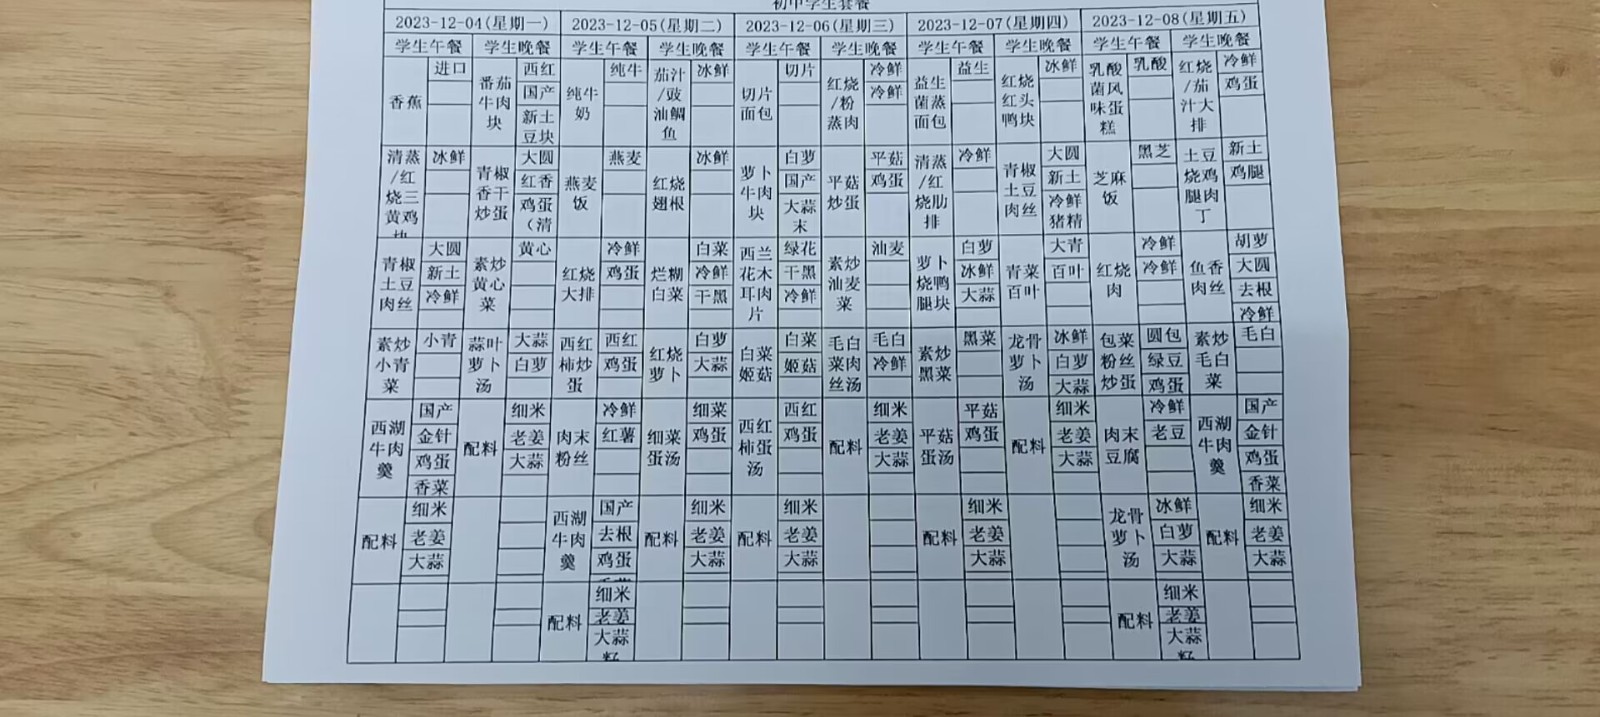 初中学生套餐
2023-12-04(星期一) 2023-12-05(星期二) 2023-12-06(星期三) 2023-12-07(星期四) 2023-12-08(星期五)
学生午餐 学生晚餐 学生午餐 学生晚餐 学生午餐 学生晚餐 学生午餐 学生晚餐 学生午餐 学生晚餐
香蕉 进口 番茄牛肉块 西红 国产 新土豆块 纯牛奶 纯牛 茄汁/豉油鲷鱼 冰鲜 切片面包 切片 红烧/粉蒸肉 冷鲜 冷鲜 益生菌蒸面包 益生 红烧红头鸭块 冰鲜 乳酸菌风味蛋糕 乳酸 红烧/茄汁大排 冷鲜 鸡蛋
清蒸/红烧三黄鸡块 冰鲜 青椒香干炒蛋 大圆 红香 鸡蛋（清 燕麦饭 燕麦 红烧翅根 冰鲜 萝卜牛肉块 白萝 国产 大蒜末 平菇炒蛋 平菇 鸡蛋 清蒸/红烧肋排 冷鲜 青椒土豆肉丝 大圆 新土 冷鲜猪精 芝麻饭 黑芝 土豆烧鸡腿肉丁 新土 鸡腿
青椒土豆肉丝 大圆 新土 冷鲜 素炒黄心菜 黄心 红烧大排 冷鲜 鸡蛋 烂糊白菜 白菜 冷鲜 干黑 西兰花木耳肉片 绿花 干黑 冷鲜 素炒油麦菜 油麦 萝卜烧鸭腿块 白萝 冰鲜 大蒜 青菜百叶 大青 百叶 红烧肉 冷鲜 冷鲜 鱼香肉丝 胡萝 大圆 去根 冷鲜
素炒小青菜 小青 蒜叶萝卜汤 大蒜 白萝 西红柿炒蛋 西红 鸡蛋 红烧萝卜 白萝 大蒜 白菜姬菇 白菜 姬菇 毛白菜肉丝汤 毛白 冷鲜 素炒黑菜 黑菜 龙骨萝卜汤 冰鲜 白萝 大蒜 包菜粉丝炒蛋 圆包 绿豆 鸡蛋 素炒毛白菜 毛白
西湖牛肉羹 国产 金针 鸡蛋 香菜 配料 细米 老姜 大蒜 肉末粉丝 冷鲜 红薯 细菜蛋汤 细菜 鸡蛋 西红柿蛋汤 西红 鸡蛋 配料 细米 老姜 大蒜 平菇蛋汤 平菇 鸡蛋 配料 细米 老姜 大蒜 肉末豆腐 冷鲜 老豆 西湖牛肉羹 国产 金针 鸡蛋 香菜
配料 细米 老姜 大蒜 西湖牛肉羹 国产 去根 鸡蛋 配料 细米 老姜 大蒜 配料 细米 老姜 大蒜 配料 细米 老姜 大蒜 龙骨萝卜汤 冰鲜 白萝 大蒜 配料 细米 老姜 大蒜
配料 细米 老姜 大蒜 配料 细米 老姜 大蒜